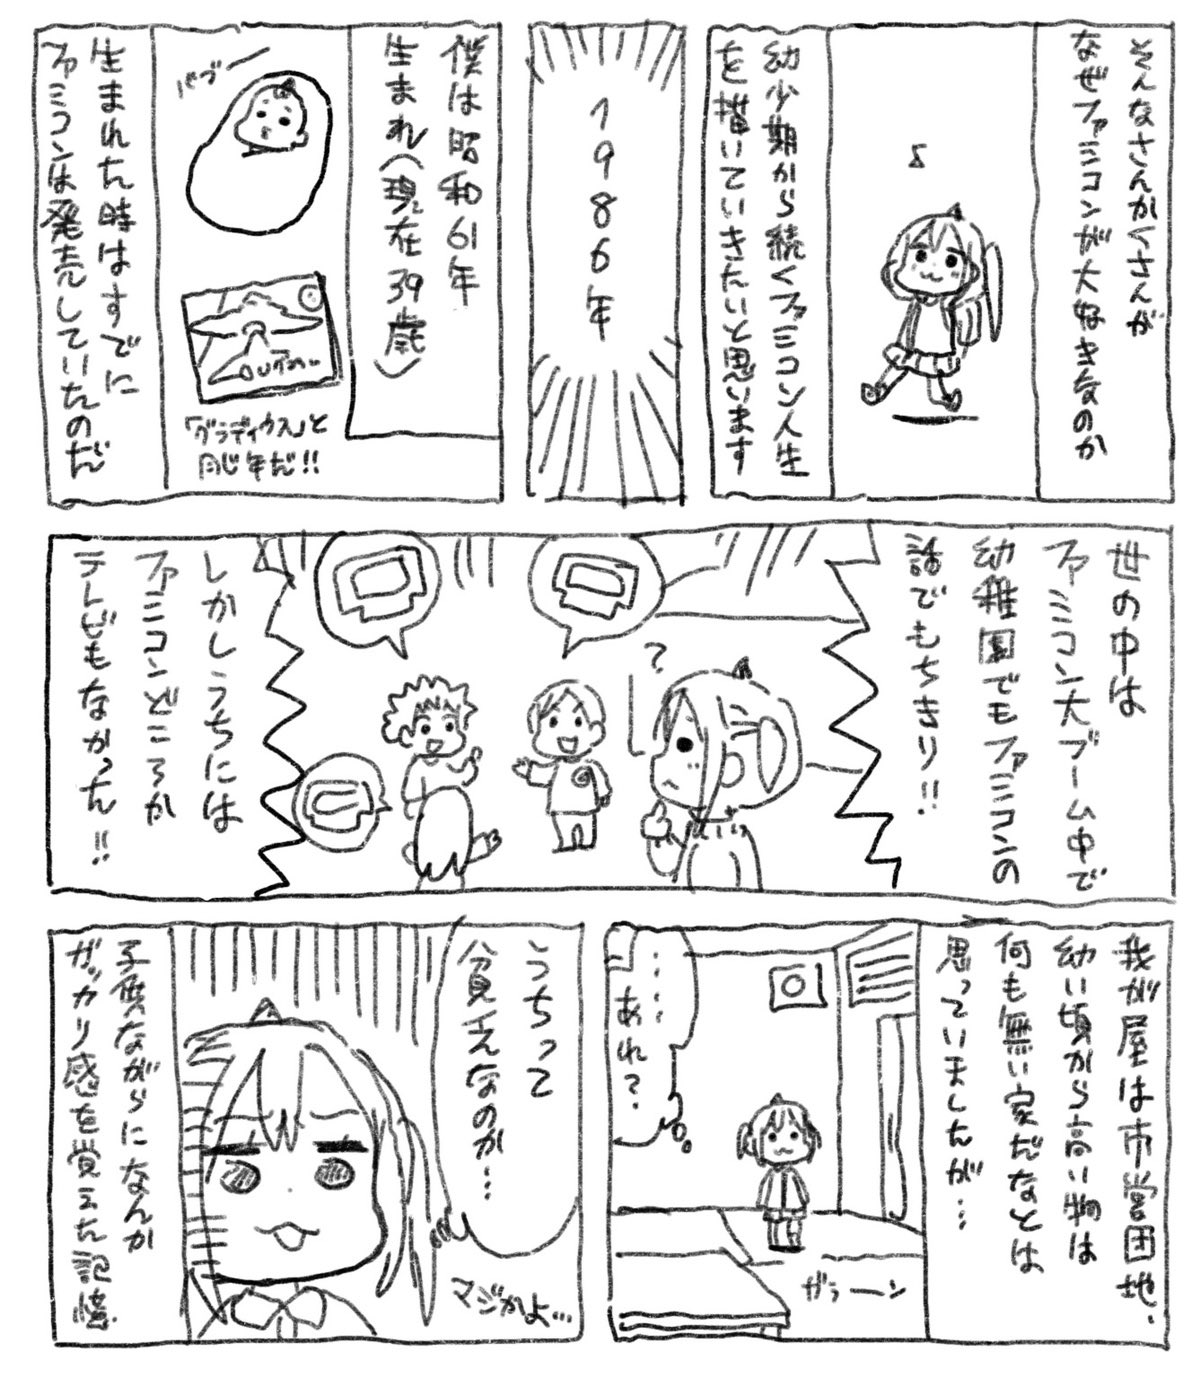 そんなさんかくさんが
なぜファミコンが大好きなのか
♪
幼少期から続くファミコン人生
を描いていきたいと思います
1986年
僕は昭和61年
生まれ(現在39歳)
バブー
「グラディウス」と
同じ年だ!!
生まれた時はすでに
ファミコンは発売していたのだ
世の中は
ファミコン大ブーム中で
幼稚園でもファミコンの
話でもちきり!!
?
しかしうちには
ファミコンどころか
テレビもなかった!!
我が屋は市営団地、
幼い頃から高い物は
何も無い家だなとは
思っていましたが…
……あれ?
ガラーン
うちって
貧乏なのか…
マジかよ…
子供ながらになんか
ガッカリ感を覚えた記憶